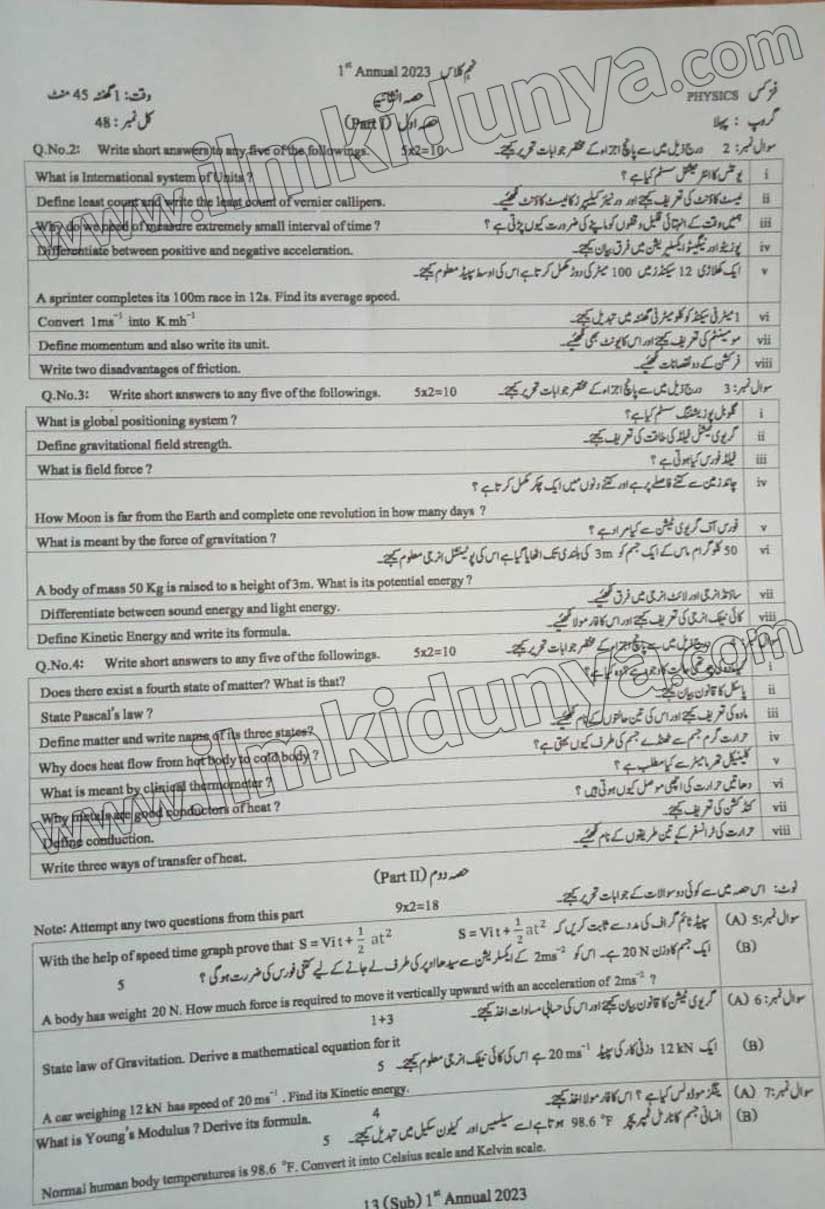 www.ilmkidunya.com
نہم کلاس 1st Annual 2023
فزکس PHYSICS حصہ انشائیہ وقت: 1 گھنٹہ 45 منٹ
گروپ : پہلا حصہ اول (Part I) کل نمبر: 48
Q.No.2: Write short answers to any five of the followings. 5x2=10 سوال نمبر: 2 درج ذیل میں سے پانچ اجزاء کے مختصر جوابات تحریر کیجئے۔
What is International system of Units ? یونٹس کا انٹرنیشنل سسٹم کیا ہے ؟ i
Define least count and write the least count of vernier callipers. لیسٹ کاؤنٹ کی تعریف کیجئے اور ورنیئر کیلیپرز کا لیسٹ کاؤنٹ لکھیئے۔ ii
Why do we need of measure extremely small interval of time ? ہمیں وقت کے انتہائی قلیل وقفوں کو ماپنے کی ضرورت کیوں پڑتی ہے ؟ iii
Differentiate between positive and negative acceleration. پوزیٹو اور نیگیٹو ایکسلریشن میں فرق بیان کیجئے۔ iv
ایک کھلاڑی 12 سیکنڈز میں 100 میٹر کی دوڑ مکمل کرتا ہے اس کی اوسط سپیڈ معلوم کیجئے۔ v
A sprinter completes its 100m race in 12s. Find its average speed.
Convert 1ms⁻¹ into K mh⁻¹ 1 میٹر فی سیکنڈ کو کلومیٹر فی گھنٹہ میں تبدیل کیجئے۔ vi
Define momentum and also write its unit. مومینٹم کی تعریف کیجئے اور اس کا یونٹ بھی لکھیئے۔ vii
Write two disadvantages of friction. فرکشن کے دو نقصانات لکھیئے۔ viii
Q.No.3: Write short answers to any five of the followings. 5x2=10 سوال نمبر: 3 درج ذیل میں سے پانچ اجزاء کے مختصر جوابات تحریر کیجئے۔
What is global positioning system ? گلوبل پوزیشننگ سسٹم کیا ہے ؟ i
Define gravitational field strength. گریوی ٹیشنل فیلڈ کی طاقت کی تعریف کیجئے۔ ii
What is field force ? فیلڈ فورس کیا ہوتی ہے ؟ iii
چاند زمین سے کتنے فاصلے پر ہے اور کتنے دنوں میں ایک چکر مکمل کرتا ہے ؟ iv
How Moon is far from the Earth and complete one revolution in how many days ?
What is meant by the force of gravitation ? فورس آف گریوی ٹیشن سے کیا مراد ہے ؟ v
50 کلوگرام ماس کے ایک جسم کو 3m کی بلندی تک اٹھایا گیا ہے اس کی پوٹینشل انرجی معلوم کیجئے۔ vi
A body of mass 50 Kg is raised to a height of 3m. What is its potential energy ?
Differentiate between sound energy and light energy. ساؤنڈ انرجی اور لائٹ انرجی میں فرق لکھیئے۔ vii
Define Kinetic Energy and write its formula. کائی نیٹک انرجی کی تعریف کیجئے اور اس کا فارمولا لکھیئے۔ viii
Q.No.4: Write short answers to any five of the followings. 5x2=10 درج ذیل میں سے پانچ اجزاء کے مختصر جوابات تحریر کیجئے۔
Does there exist a fourth state of matter? What is that? i
State Pascal's law ? پاسکل کا قانون بیان کیجئے۔ ii
Define matter and write name of its three states? مادہ کی تعریف کیجئے اور اس کی تین حالتوں کے نام لکھیئے۔ iii
Why does heat flow from hot body to cold body ? حرارت گرم جسم سے ٹھنڈے جسم کی طرف کیوں بہتی ہے ؟ iv
What is meant by clinical thermometer ? کلینیکل تھرمامیٹر سے کیا مطلب ہے ؟ v
Why metals are good conductors of heat ? دھاتیں حرارت کی اچھی موصل کیوں ہوتی ہیں ؟ vi
Define conduction. کنڈکشن کی تعریف کیجئے۔ vii
Write three ways of transfer of heat. حرارت کی ٹرانسفر کے تین طریقوں کے نام لکھیئے۔ viii
حصہ دوم (Part II)
Note: Attempt any two questions from this part 9x2=18 نوٹ: اس حصہ میں سے کوئی دو سوالات کے جوابات تحریر کیجئے۔
With the help of speed time graph prove that S = Vit + 1/2 at² سپیڈ ٹائم گراف کی مدد سے ثابت کریں کہ S = Vit + 1/2 at² سوال نمبر: 5 (A)
5 ایک جسم کا وزن 20 N ہے۔ اس کو 2ms⁻² کے ایکسلریشن سے سیدھا اوپر کی طرف لے جانے کے لیے کتنی فورس کی ضرورت ہو گی ؟ (B)
A body has weight 20 N. How much force is required to move it vertically upward with an acceleration of 2ms⁻² ?
1+3 گریوی ٹیشن کا قانون بیان کیجئے اور اس کی حسابی مساوات اخذ کیجئے۔ سوال نمبر: 6 (A)
State law of Gravitation. Derive a mathematical equation for it
5 ایک 12 kN وزنی کار کی سپیڈ 20 ms⁻¹ ہے اس کی کائی نیٹک انرجی معلوم کیجئے۔ (B)
A car weighing 12 kN has speed of 20 ms⁻¹ . Find its Kinetic energy.
What is Young's Modulus ? Derive its formula. 4 ینگز موڈولس کیا ہے ؟ اس کا فارمولا اخذ کیجئے۔ سوال نمبر: 7 (A)
5 انسانی جسم کا نارمل ٹمپریچر 98.6 °F ہوتا ہے اسے سیلسیس اور کیلون سکیل میں تبدیل کیجئے۔ (B)
Normal human body temperatures is 98.6 °F. Convert it into Celsius scale and Kelvin scale.
13 (Sub) 1st Annual 2023
www.ilmkidunya.com